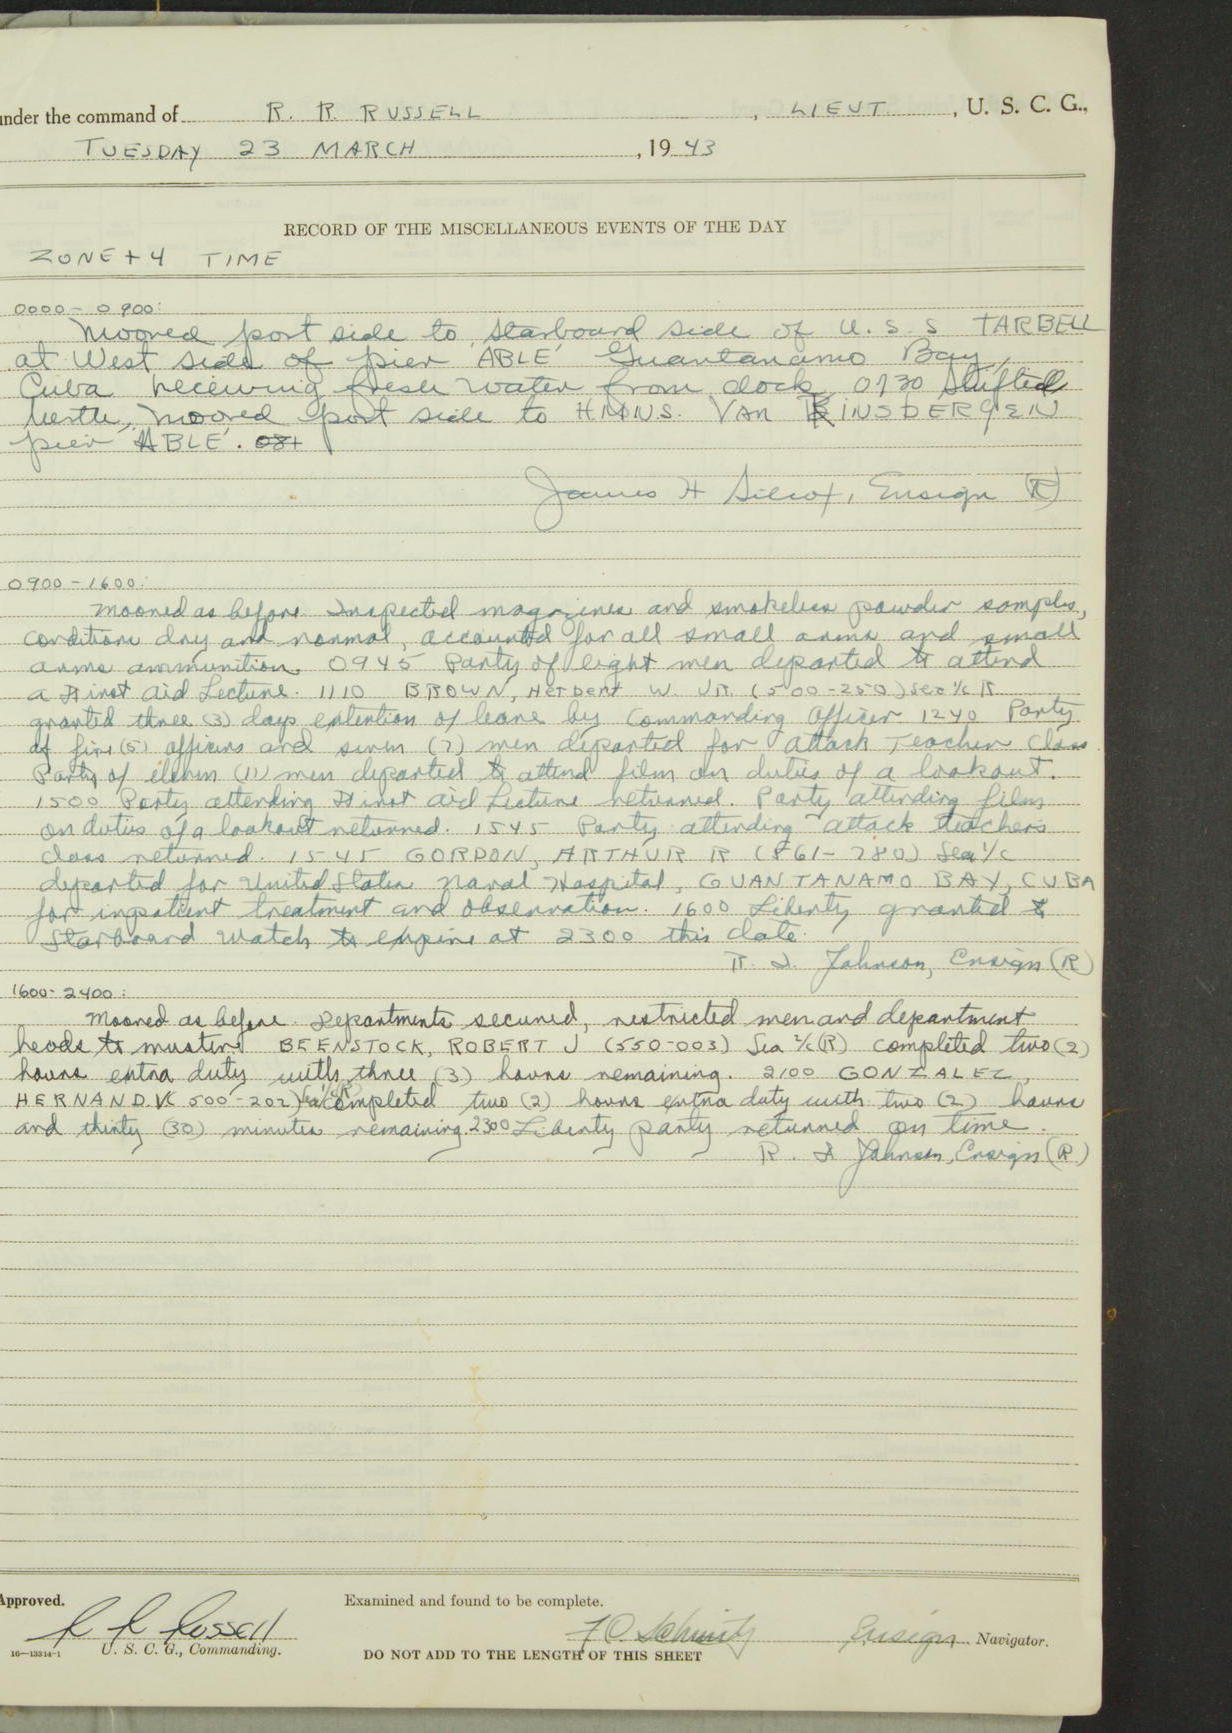 under the command of R. R. RUSSELL , LIEUT , U. S. C. G.,
TUESDAY 23 MARCH , 1943
RECORD OF THE MISCELLANEOUS EVENTS OF THE DAY
ZONE + 4 TIME
0000 - 0900:
Moored port side to starboard side of U. S. S TARBELL
at West side of pier ABLE Guantanamo Bay,
Cuba receiving fresh water from dock 0730 Shifted
berth, moored port side to HNMS. VAN KINSDERGEN
pier ABLE.
James H Silcox, Ensign (R)
0900 - 1600:
Moored as before Inspected magazines and smokeless powder samples,
conditions dry and normal, accounted for all small arms and small
arms ammunition. 0945 Party of eight men departed to attend
a First aid Lecture. 1110 BROWN, Herbert W. JR. (500-250) Sea 1/c R
granted three (3) days extention of leave by Commanding Officer 1240 Party
of five (5) officers and seven (7) men departed for attack Teacher Class
Party of eleven (11) men departed to attend film on duties of a lookout.
1500 Party attending First aid Lecture returned. Party attending film
on duties of a lookout returned. 1545 Party attending attack teachers
class returned. 1545 GORDON, ARTHUR R (861-780) Sea 1/c
departed for United States Naval Hospital, GUANTANAMO BAY, CUBA
for inpatient treatment and observation. 1600 Liberty granted to
Starboard Watch to expire at 2300 this date.
R. I. Johnson, Ensign (R)
1600-2400:
Moored as before. Departments secured, restricted men and department
heads to musters BEENSTOCK, ROBERT J (550-003) Sea 2/c (R) completed two (2)
hours extra duty with three (3) hours remaining. 2100 GONZALEZ,
HERNAND. V( 500-202) completed two (2) hours extra duty with two (2) hours
and thirty (30) minutes remaining. 2300 Liberty party returned on time.
R. I Johnson, Ensign (R)
Approved. Examined and found to be complete.
R R Russell F O. Schmitz Ensign Navigator.
16—13314-1 U. S. C. G., Commanding. DO NOT ADD TO THE LENGTH OF THIS SHEET